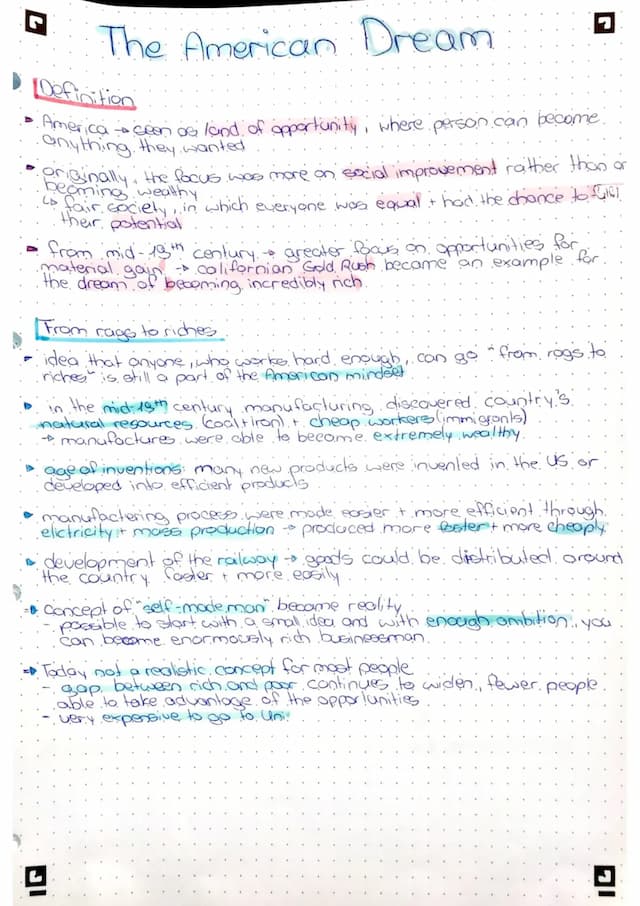 The American Dream
Definition
America → seen as land of opportunity, where person can become
anything they wanted
originally, the focus was more on social improvement rather than on
becoming wealthy
↳ fair society, in which everyone was equal + had the chance to
their potential
from mid-19th century → greater focus on opportunities for
material gain → californian Gold Rush became an example for
the dream of becoming incredibly rich
From rags to riches
idea that anyone, who works hard enough, can go "from rags to
riches" is still a part of the American mindset
in the mid-19th century manufacturing discovered country's
natural resources (coal+iron) + cheap workers (immigrants)
→ manufactures were able to become extremely wealthy
age of inventions: many new products were invented in the US or
developed into efficient products
manufactering process were made easier + more efficient through
elctricity + mass production → produced more faster + more cheaply
development of the railway → goods could be distributed around
the country faster + more easily
⇒ Concept of "self-made man" became reality
- possible to start with a small idea and with enough ambition, you
can become enormously rich businessman
⇒ Today not a realistic concept for most people
- gap between rich and poor continues to widen, fewer people
able to take advantage of the opportunities
- very expensive to go to Uni